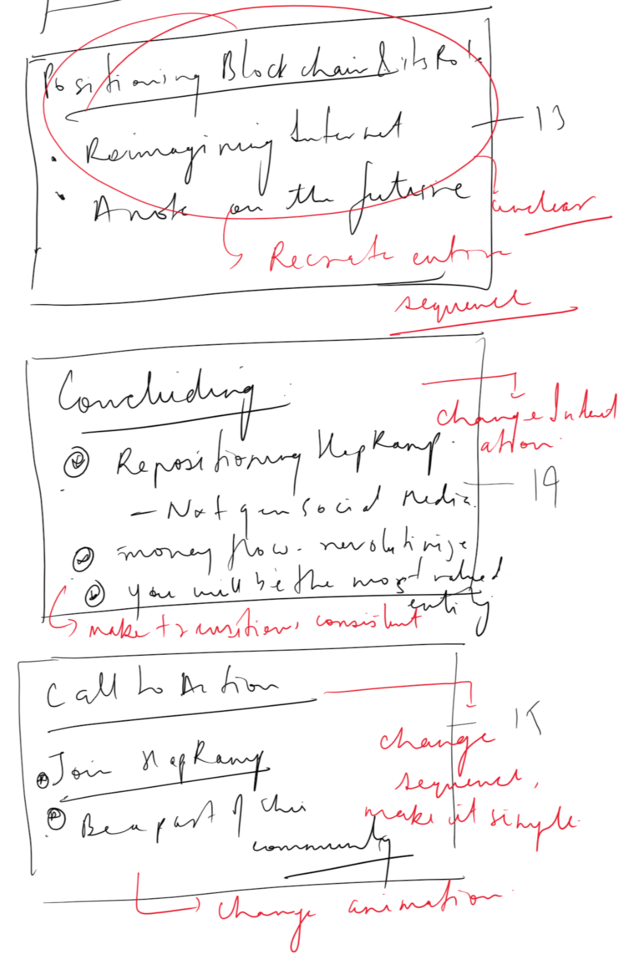 Positioning Blockchain & its Role
• Reimagining Internet
13
• A note on the future
unclear
Recreate entire
sequence
Concluding
change Indent
ation.
Repositioning HapRamp.
— Next gen social Media
14
money flow - revolutionize
you will be the most valued
entity
make transitions consistent
Call to Action
15
change
Join HapRamp
sequence,
make it simple.
Be a part of this
community
change animation.